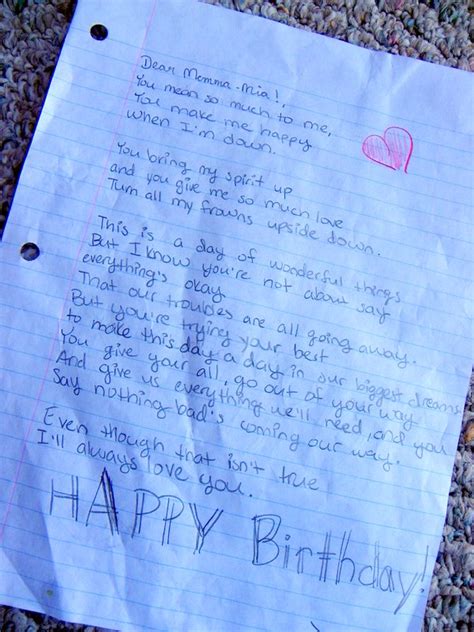 Dear Momma-Mia!,
You mean so much to me,
You make me happy
when I'm down.
You bring my spirit up
and you give me so much love
Turn all my frowns upside down.
This is a day of wonderful things
But I know you're not about say
everything's okay
That our troubles are all going away.
But you're trying your best
to make this day a day in our biggest dreams
You give your all, go out of your way
And give us everything we'll need, and you
Say nothing bad's coming our way.
Even though that isn't true
I'll always love you.
HAPPY Birthday!